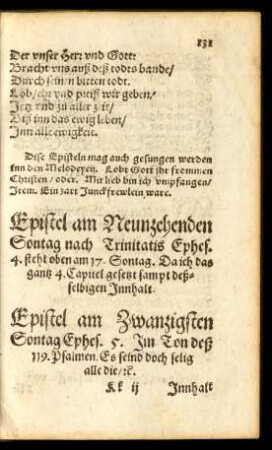 131
Der vnser Herr vnd Gott:
Bracht vns auß deß todts bande/
Durch sein'n bittern todt.
Lob/ehr vnd preiß wir geben/
Jetz vnd zu aller zeit/
Biß inn das ewig leben/
Inn alle ewigkeit.
Dise Episteln mag auch gesungen werden
inn den Melodeyen. Lobt Gott ihr frommen
Christen/ oder. Mit lieb bin ich vmpfangen/
Item. Ein zart Junckfrewlein ware.
Epistel am Neunzehenden
Sontag nach Trinitatis Ephes.
4. steht oben am 17. Sontag. Da ich das
gantz 4. Capitel gesetzt sampt deß-
selbigen Innhalt.
Epistel am Zwanzigsten
Sontag Ephes. 5. Im Ton deß
119. Psalmen. Es seind doch selig
alle die/ꝛc.
Kk ij Innhalt